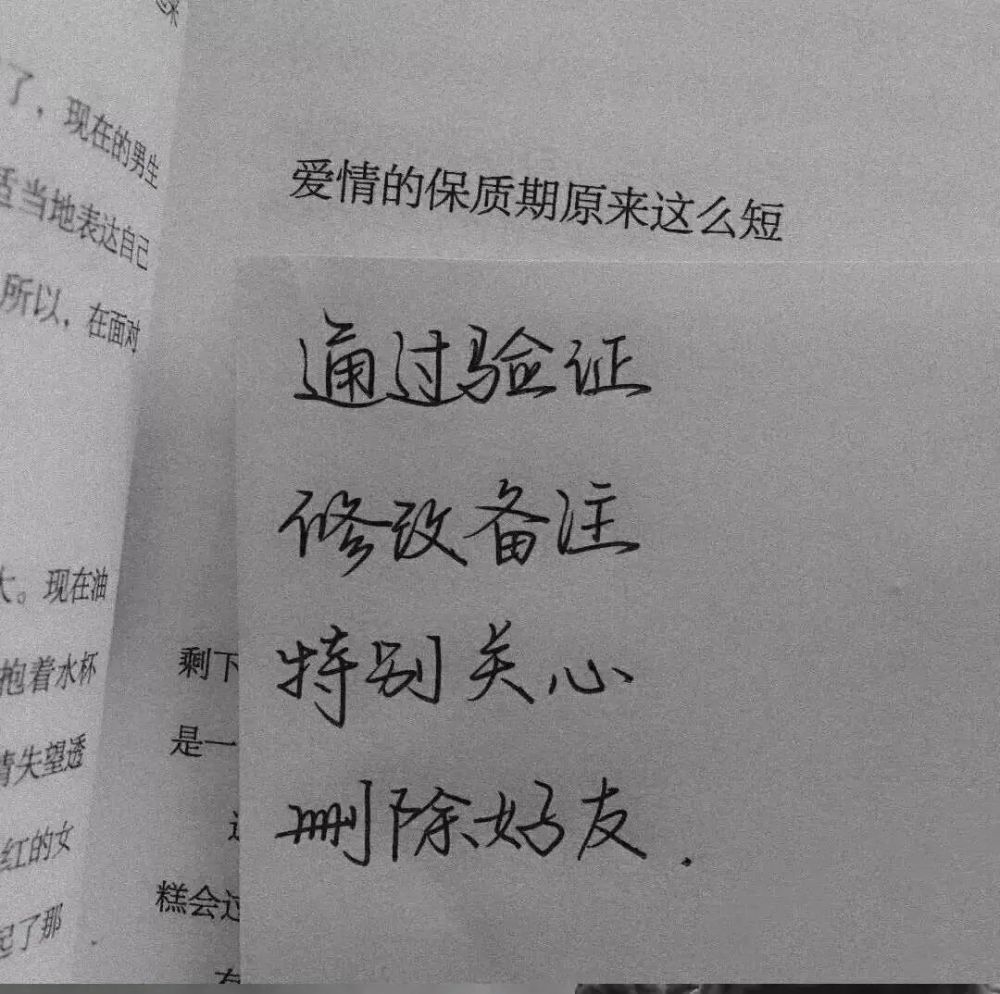 了，现在的男生
适当地表达自己
所以，在面对
大。现在油
抱着水杯
情失望透
红的女
起了那
爱情的保质期原来这么短
通过验证
修改备注
特别关心
删除好友.
剩下
是一
糕会过
有